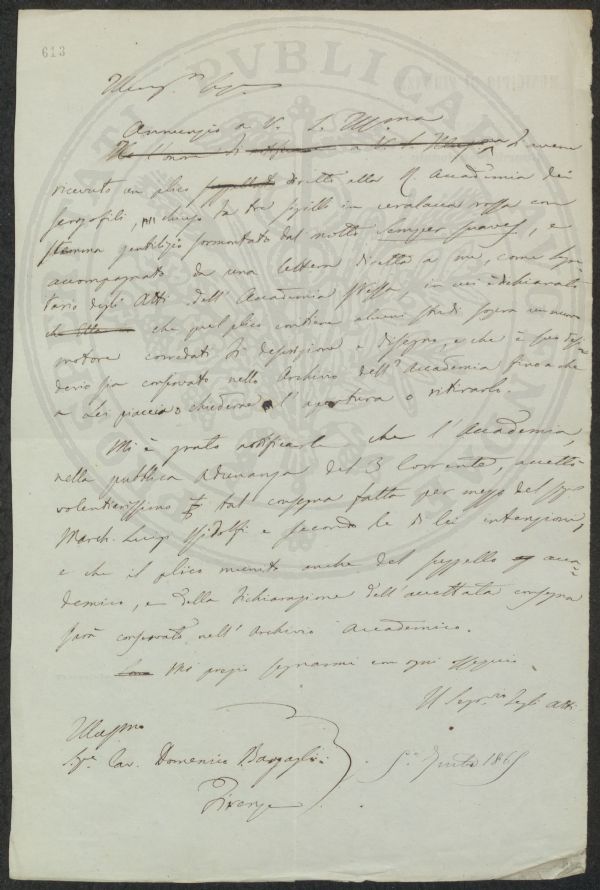 613
Annunzio a V. S. Ill.ma
Ho l'onore di a V. S. d'avere
ricevuto un plico diretto alla R. Accademia dei
Georgofili, chiuso da tre sigilli in ceralacca rossa con
stemma gentilizio sormontato dal motto Semper Suaves, e
accompagnato da una lettera diretta a me, come Segre
tario degli Atti dell'Accademia stessa, in cui è dichiarato
che che quel plico contiene alcuni studi sopra un nuovo
motore corredati di descrizione e disegno, e che è suo desi
derio sia conservato nello Archivio dell'Accademia fino a che
a Lei piaccia o chiederne l'apertura o ritirarlo.
Mi è grato notificarle che l'Accademia,
nella pubblica adunanza del 3 Corrente, accettò
volentierissimo tal consegna fatta per mezzo del Sig.
March. Luigi Ridolfi e secondo le di lei intenzioni,
e che il plico munito anche del suggello acca
demico, e della dichiarazione dell'accettata consegna
sarà conservato nell'Archivio Accademico.
Mi pregio segnarmi con ogni ossequio
Il Segr.rio degli Atti
Illmo
Sig.re Cav. Domenico
Firenze
1865